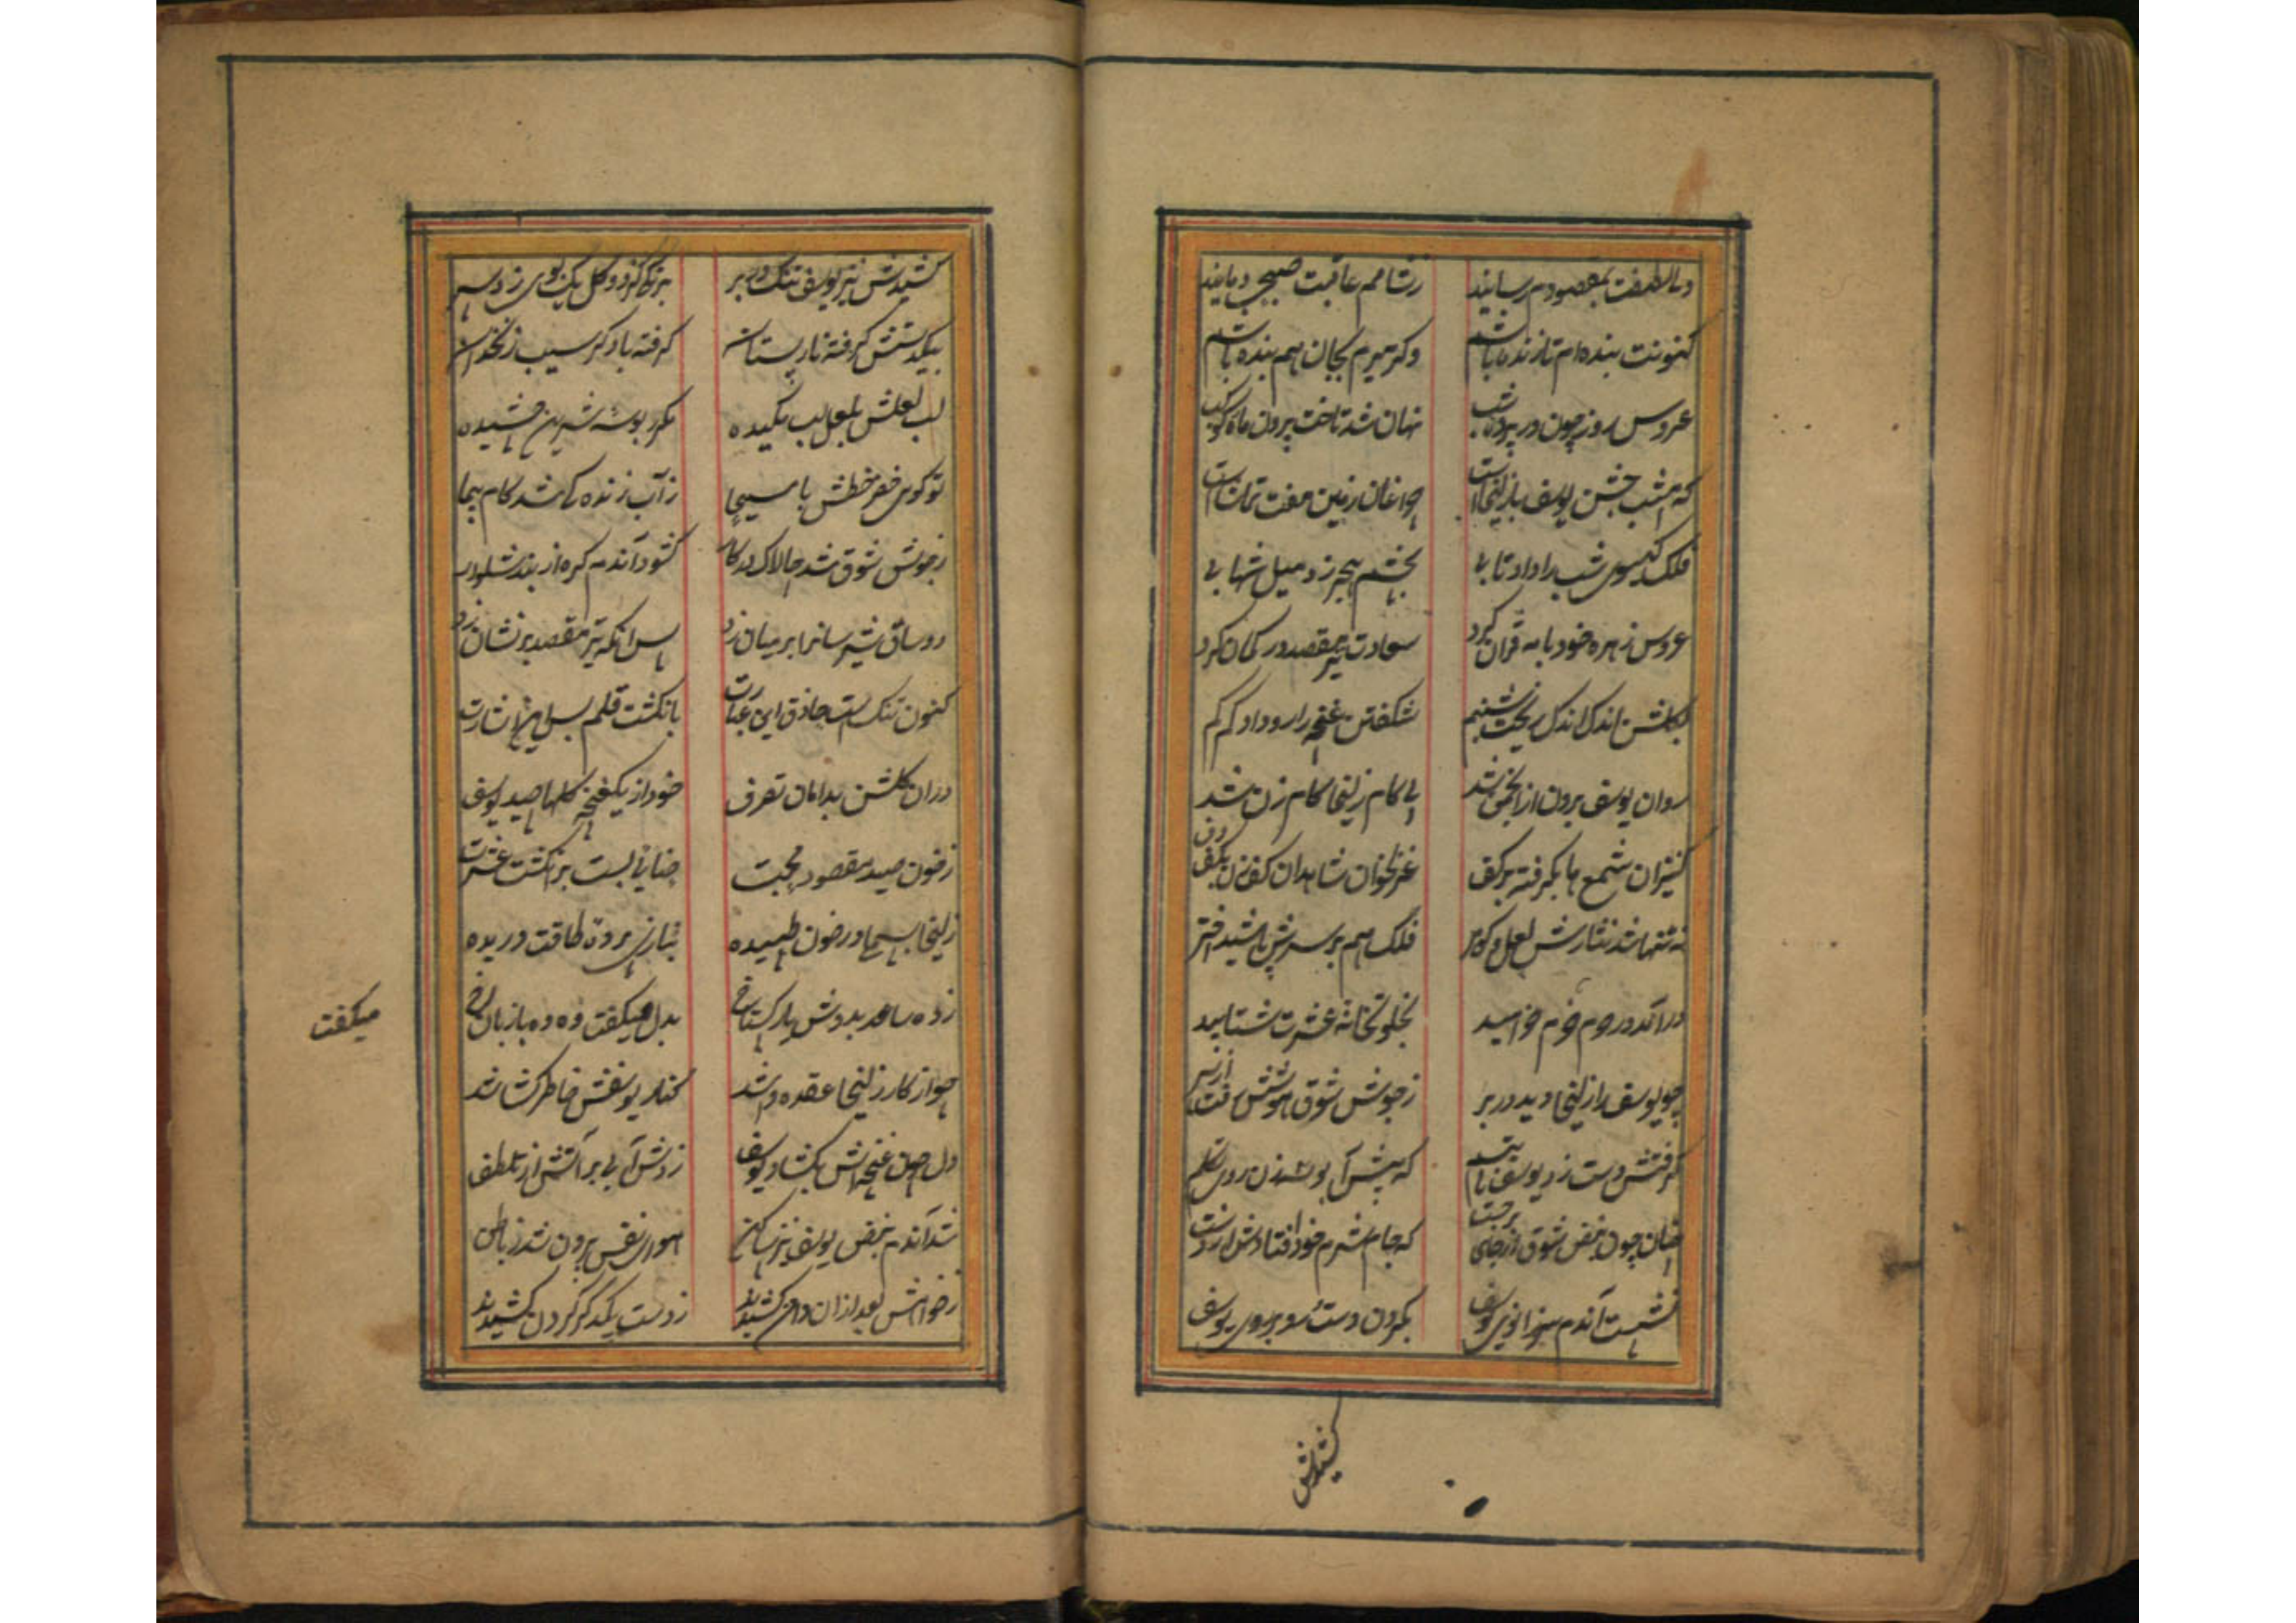 دمالطفت بمقصودم رسانید ز شامم عاقبت صبحی دمانید
کنونت بنده‌ام تا زنده باشم وگر میرم بجان هم بنده باشم
عروس روز چون در پرده شب نهان شد تاخت بیرون ماه کوکب
که امشب جشن یوسف با زلیخاست چراغان زمین مفت تماشاست
فلک گیسوی شب را داد تابی بچشم هجر زد میل شهابی
عروس زهره خود با مه قران کرد سعادت تیر مقصد در کمان کرد
بگلشن اندک اندک ریخت شبنم شکفتن غنچه را رو داد کم کم
روان یوسف برون از انجمن شد پی کام زلیخا کام زن شد
کنیزان شمع ها بگرفته بر کف غزلخوان شاهدان کف زن بکف دف
نه تنها شد نثارش لعل و گوهر فلک هم بر سرش پاشید اختر
درآمد در حرم خرم خرامید بخلوتخانه عشرت شتابید
چو یوسف را زلیخا دید در بر ز جوش شوق هوشش رفت از سر
گرفتش دست زد یوسف که پیش آ بوسه زن روی
چنان چون نبض شوق از جای برجست که جام شرم خود افتادش از دست
نشست آندم بزانوی یوسف بگردن دست رو بر روی یوسف
کشیدش
کشیدش نیز یوسف تنگ در بر برنگ گل یک بوی زد سر
بیکدستش گرفته نار پستان گرفته با دگر سیب زنخدان
لب لعلش بلعل لب مکیده مکرر بوسه شیرین چشیده
تو گوی خضر خطش با مسیحا ز آب زنده شد کام پیما
ز جوش شوق شد چالاک در کار گشود آندم گره از بند شلوار
دو ساق سیم سانرا بر میان زد پس آنکه تیر مقصد بر نشان زد
کنون تنگ است حاذق این عبارت بانگشت قلم بس این اشارت
در آن گلشن بدامان تصرف خود از یک غنچه گلها چید یوسف
ز خون صید مقصود محبت حنایی بست بر انگشت عشرت
زلیخا بسمل در خون طپیده نیازی پرده طاقت دریده
زده ساعد بدوش یار گستاخ بدل میگفت وه وه با زبان اخ
میگفت
چو از کار زلیخا عقده وا شد کنار یوسفش خاطر کشا شد
دل چون غنچه اش بکشاد یوسف زدش آبی بر آتش از تلطف
شد آندم نبض یوسف نیز ساکن هوای نفس بیرون شد ز باطن
ز خواهش بعد از آن دامن کشیدند ز دست یکدگر گردن کشیدند